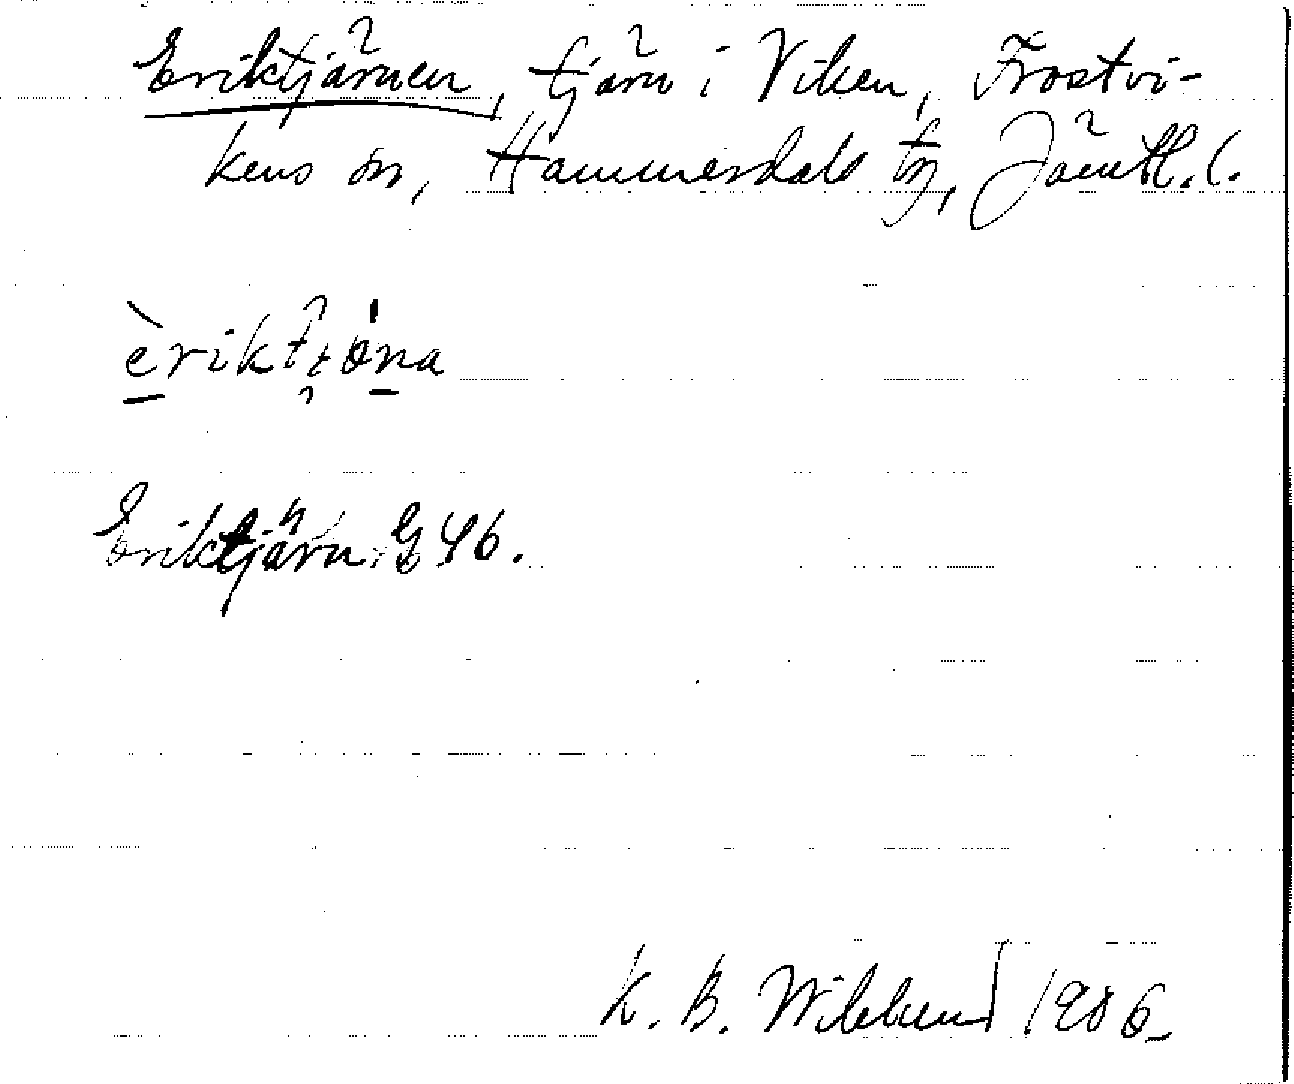 Eriktjärnen, tjärn i Viken, Frostvi-
kens sn, Hammerdals tg, Jämtl. l.
Eriktjärn G 46.
K. B. Wiklund 1906